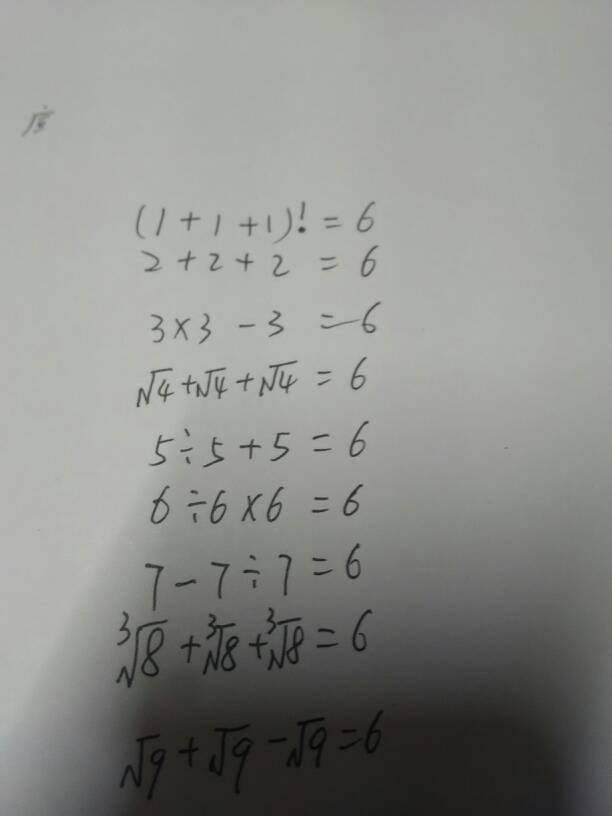 (1+1+1)! = 6
2+2+2 = 6
3×3-3 = 6
√4+√4+√4 = 6
5÷5+5 = 6
6÷6×6 = 6
7-7÷7 = 6
∛8+∛8+∛8 = 6
√9+√9-√9 = 6